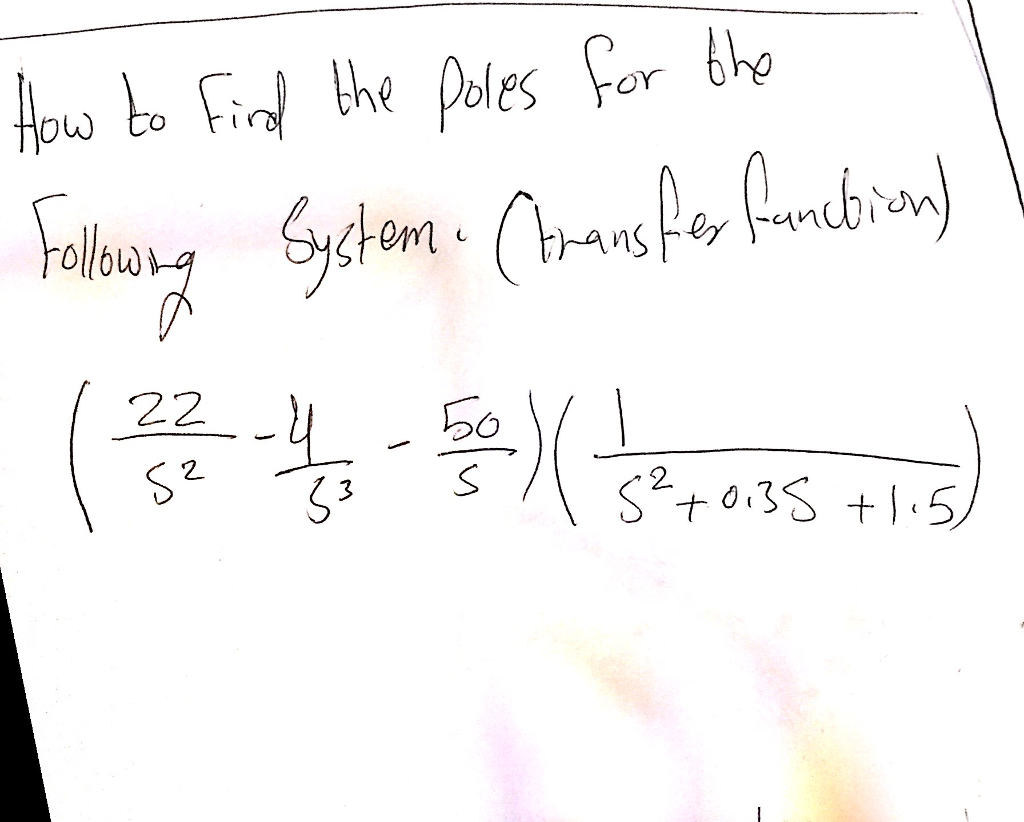 How to Find the Poles for the
Following System. (transfer function)
(22/S² - 4/S³ - 50/S)(1/S²+0.3S+1.5)